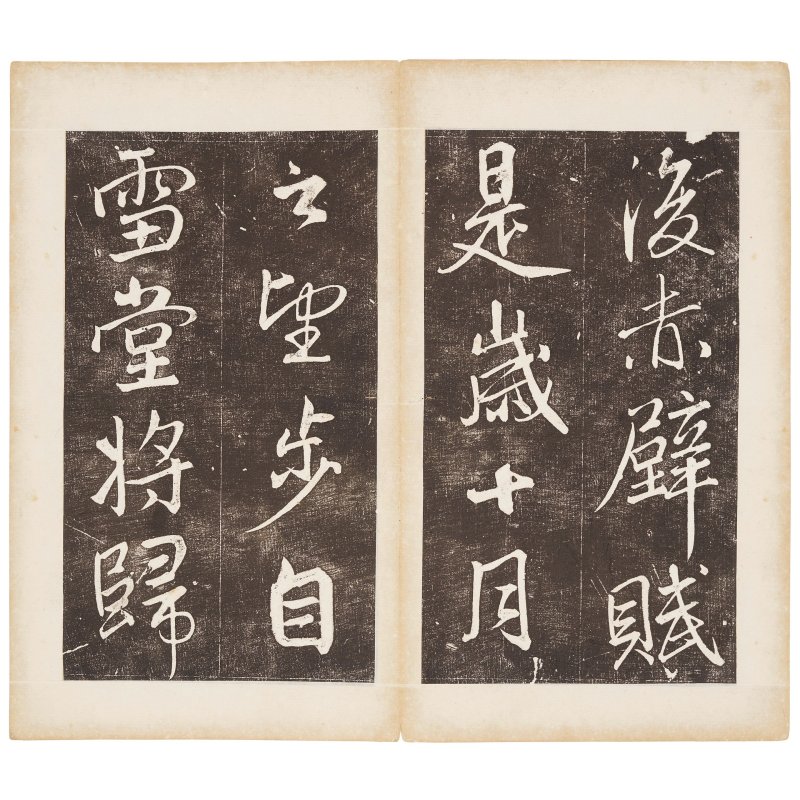 後赤壁賦
是歲十月
之望步自
雪堂將歸